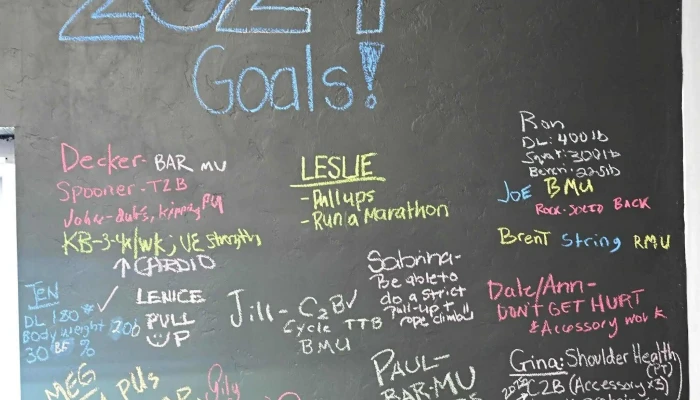 2024
Goals!
Decker- BAR MU
Spooner - T2B
John-dubs, kipping PU
KB-3-4x/wk; UE strength
↑ CARDIO
LESLIE
- Pullups
- Run a Marathon
Ron
DL: 400lb
Squat: 300lb
Bench: 225lb
JOE BMU
ROCK-SOLID BACK
Brent String RMU
JEN
DL 180# ✓
Body weight
30 BF %
LENICE
PULL
UP
Jill - C2B ✓
Cycle TTB
BMU
Sabrina-
Be able to
do a strict
Pull-up &
rope climb
Dale/Ann-
DON'T GET HURT
& Accessory work
MEG
PUs
PAUL-
BAR-MU
Gina: Shoulder Health
(PT)
C2B (Accessory x3)